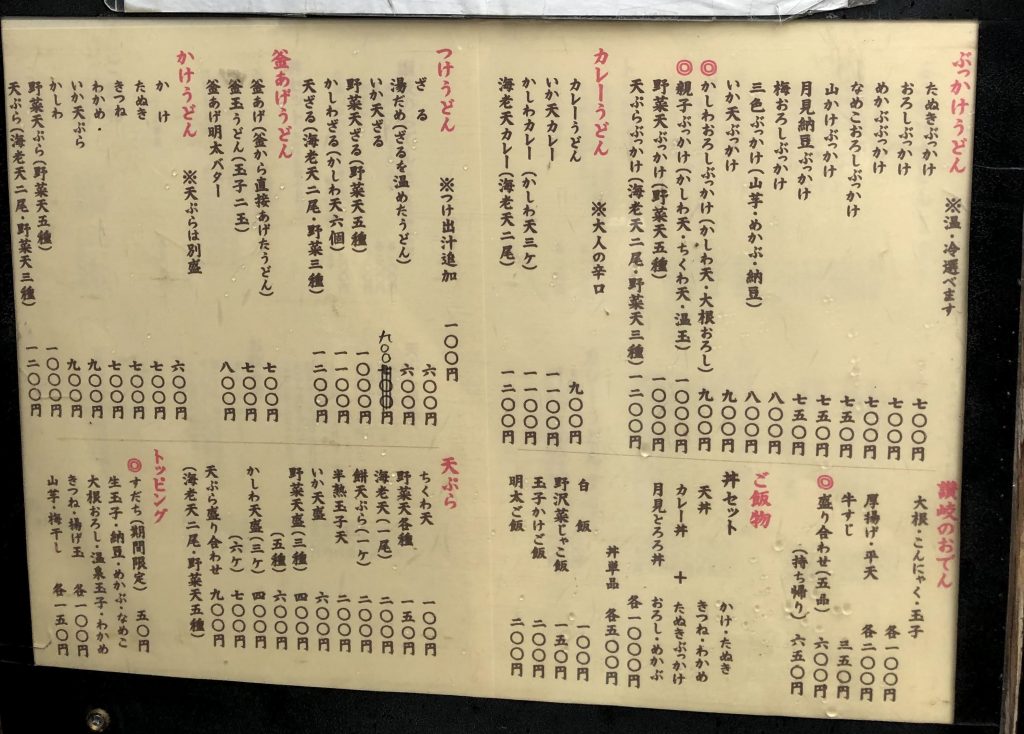 ぶっかけうどん ※温・冷選べます
たぬきぶっかけ 七〇〇円
おろしぶっかけ 七〇〇円
めかぶぶっかけ 七〇〇円
なめこおろしぶっかけ 七五〇円
山かけぶっかけ 七五〇円
月見納豆ぶっかけ 七五〇円
梅おろしぶっかけ 八〇〇円
三色ぶっかけ(山芋・めかぶ・納豆) 八〇〇円
いか天ぶっかけ 九〇〇円
◎かしわおろしぶっかけ(かしわ天・大根おろし) 九〇〇円
◎親子ぶっかけ(かしわ天・ちくわ天・温玉) 一〇〇〇円
野菜天ぶっかけ(野菜天五種) 一〇〇〇円
天ぷらぶっかけ(海老天二尾・野菜天三種) 一二〇〇円
カレーうどん ※大人の辛口
カレーうどん 九〇〇円
いか天カレー 一一〇〇円
かしわカレー(かしわ天三ケ) 一一〇〇円
海老天カレー(海老天二尾) 一二〇〇円
つけうどん ※つけ出汁追加 一〇〇円
ざる 六〇〇円
湯だめ(ざるを温めたうどん) 六〇〇円
いか天ざる 九〇〇円
野菜天ざる(野菜天五種) 一〇〇〇円
かしわざる(かしわ天六個) 一一〇〇円
天ざる(海老天二尾・野菜三種) 一二〇〇円
釜あげうどん
釜あげ(釜から直接あげたうどん) 七〇〇円
釜玉うどん(玉子二玉) 七〇〇円
釜あげ明太バター 八〇〇円
かけうどん ※天ぷらは別盛
かけ 六〇〇円
たぬき 七〇〇円
きつね 七〇〇円
わかめ 七〇〇円
いか天ぷら 九〇〇円
かしわ 九〇〇円
野菜天ぷら(野菜天五種) 一〇〇〇円
天ぷら(海老天二尾・野菜天三種) 一二〇〇円
讃岐のおでん
大根・こんにゃく・玉子 各一〇〇円
厚揚げ・平天 各二〇〇円
牛すじ 三五〇円
◎盛り合わせ(五品) 六〇〇円
(持ち帰り) 六五〇円
ご飯物
丼セット
かけ・たぬき
天丼 きつね・わかめ
カレー丼 + たぬきぶっかけ
月見とろろ丼 おろし・めかぶ
各一〇〇〇円
丼単品 各五〇〇円
白飯 一〇〇円
野沢菜じゃこ飯 一五〇円
玉子かけご飯 二〇〇円
明太ご飯 二〇〇円
天ぷら
ちくわ天 一〇〇円
野菜天各種 一五〇円
海老天(一尾) 二〇〇円
餅天ぷら(一ケ) 二〇〇円
半熟玉子天 二〇〇円
いか天盛 六〇〇円
野菜天盛(三種) 四〇〇円
(五種) 六〇〇円
かしわ天盛(三ケ) 四〇〇円
(六ケ) 七〇〇円
天ぷら盛り合わせ 九〇〇円
(海老天二尾・野菜天五種)
トッピング
◎すだち(期間限定) 五〇円
生玉子・納豆・めかぶ・なめこ
大根おろし・温泉玉子・わかめ
きつね・揚げ玉 各一〇〇円
山芋・梅干し 各一五〇円